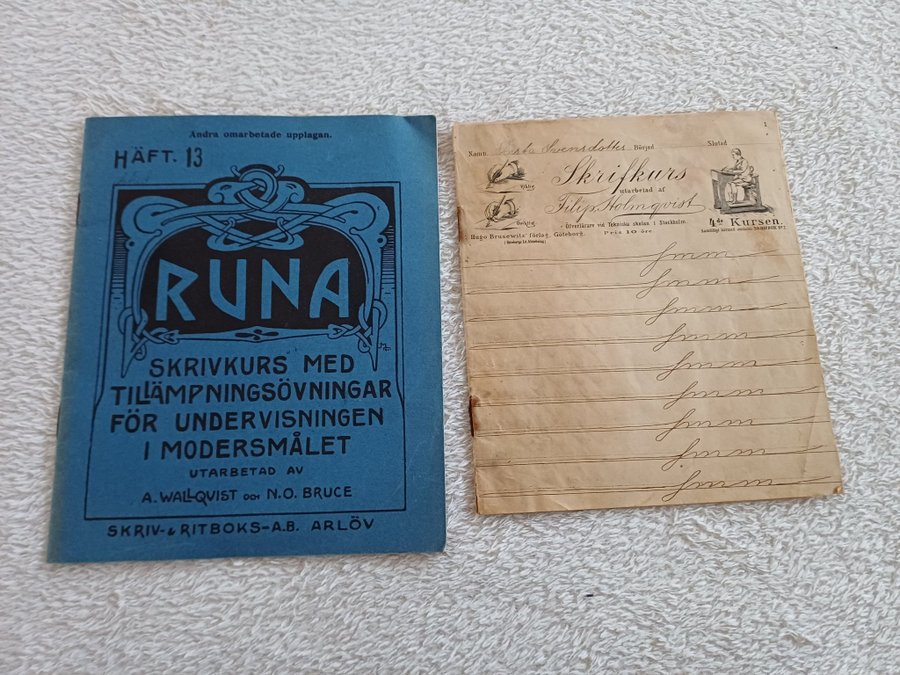 Andra omarbetade upplagan.
HÄFT. 13
RUNA
SKRIVKURS MED
TILLÄMPNINGSÖVNINGAR
FÖR UNDERVISNINGEN
I MODERSMÅLET
UTARBETAD AV
A. WALLQVIST OCH N.O. BRUCE
SKRIV- & RITBOKS-A.B. ARLÖV
Namn: Svensdotter Börjad Slutad
Skrifkurs
utarbetad af
Filip Holmqvist
Öfverlärare vid Tekniska skolan i Stockholm.
4de Kursen.
Hugo Brusewitz' förlag, Göteborg. Pris 10 öre